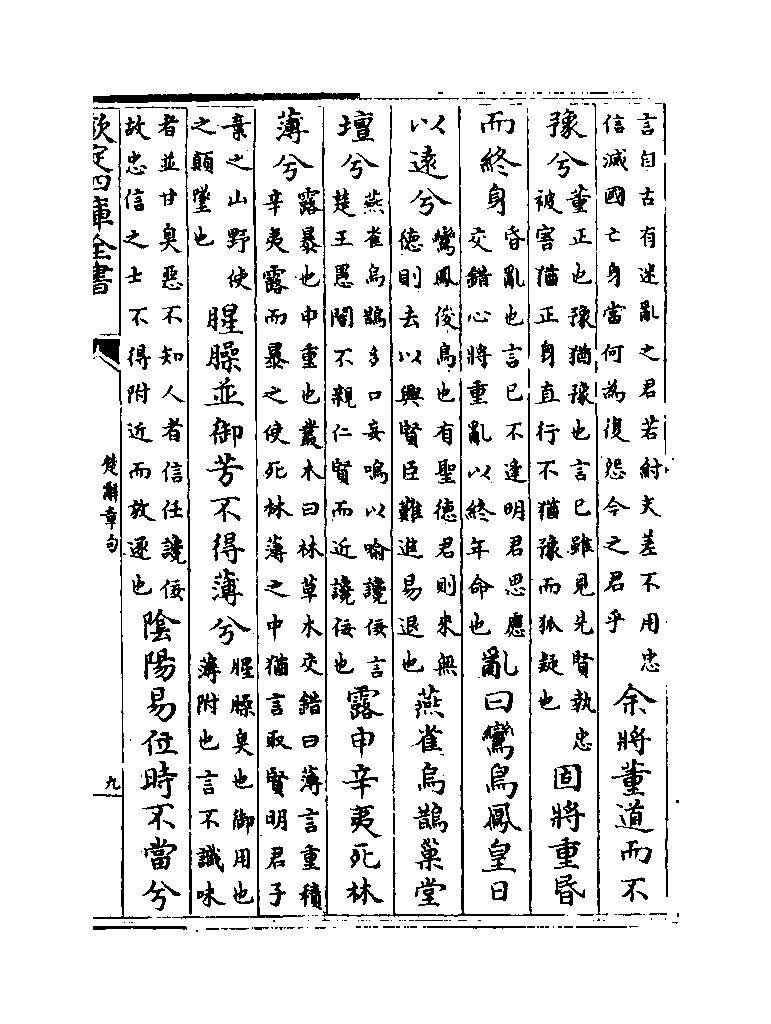 言自古有迷亂之君若紂夫差不用忠
信滅國亡身當何為復怨今之君乎
余將董道而不
豫兮
董正也豫猶豫也言己雖見先賢執忠
被害猶正身直行不猶豫而狐疑也
固將重昏
而終身
昏亂也言己不逢明君思應
交錯心將重亂以終年命也
亂曰鸞鳥鳳皇日
以遠兮
鸞鳳俊鳥也有聖德君則來無
德則去以興賢臣難進易退也
燕雀烏鵲巢堂
壇兮
燕雀烏鵲多口妄鳴以喻讒佞言
楚王愚闇不親仁賢而近讒佞也
露申辛夷死林
薄兮
露暴也申重也叢木曰林草木交錯曰薄言重積
辛夷露而暴之使死林薄之中猶言取賢明君子
棄之山野使
之顛墜也
腥臊並御芳不得薄兮
腥臊臭也御用也
薄附也言不識味
者並甘臭惡不知人者信任讒佞
故忠信之士不得附近而放逐也
陰陽易位時不當兮
欽定四庫全書
楚辭章句
九